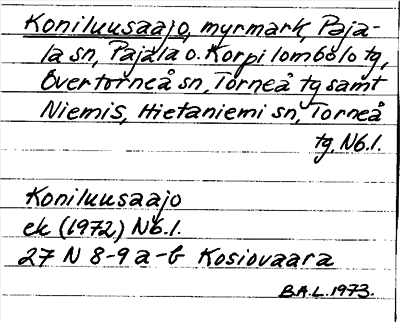 Koniluusaajo, myrmark, Paja-
la sn, Pajala o. Korpilombolo tg,
Övertorneå sn, Torneå tg samt
Niemis, Hietaniemi sn, Torneå
tg, Nb.l.
Koniluusaajo
ek (1972) Nb.l.
27 N 8-9 a-b Kosiovaara
B.A.L. 1973.